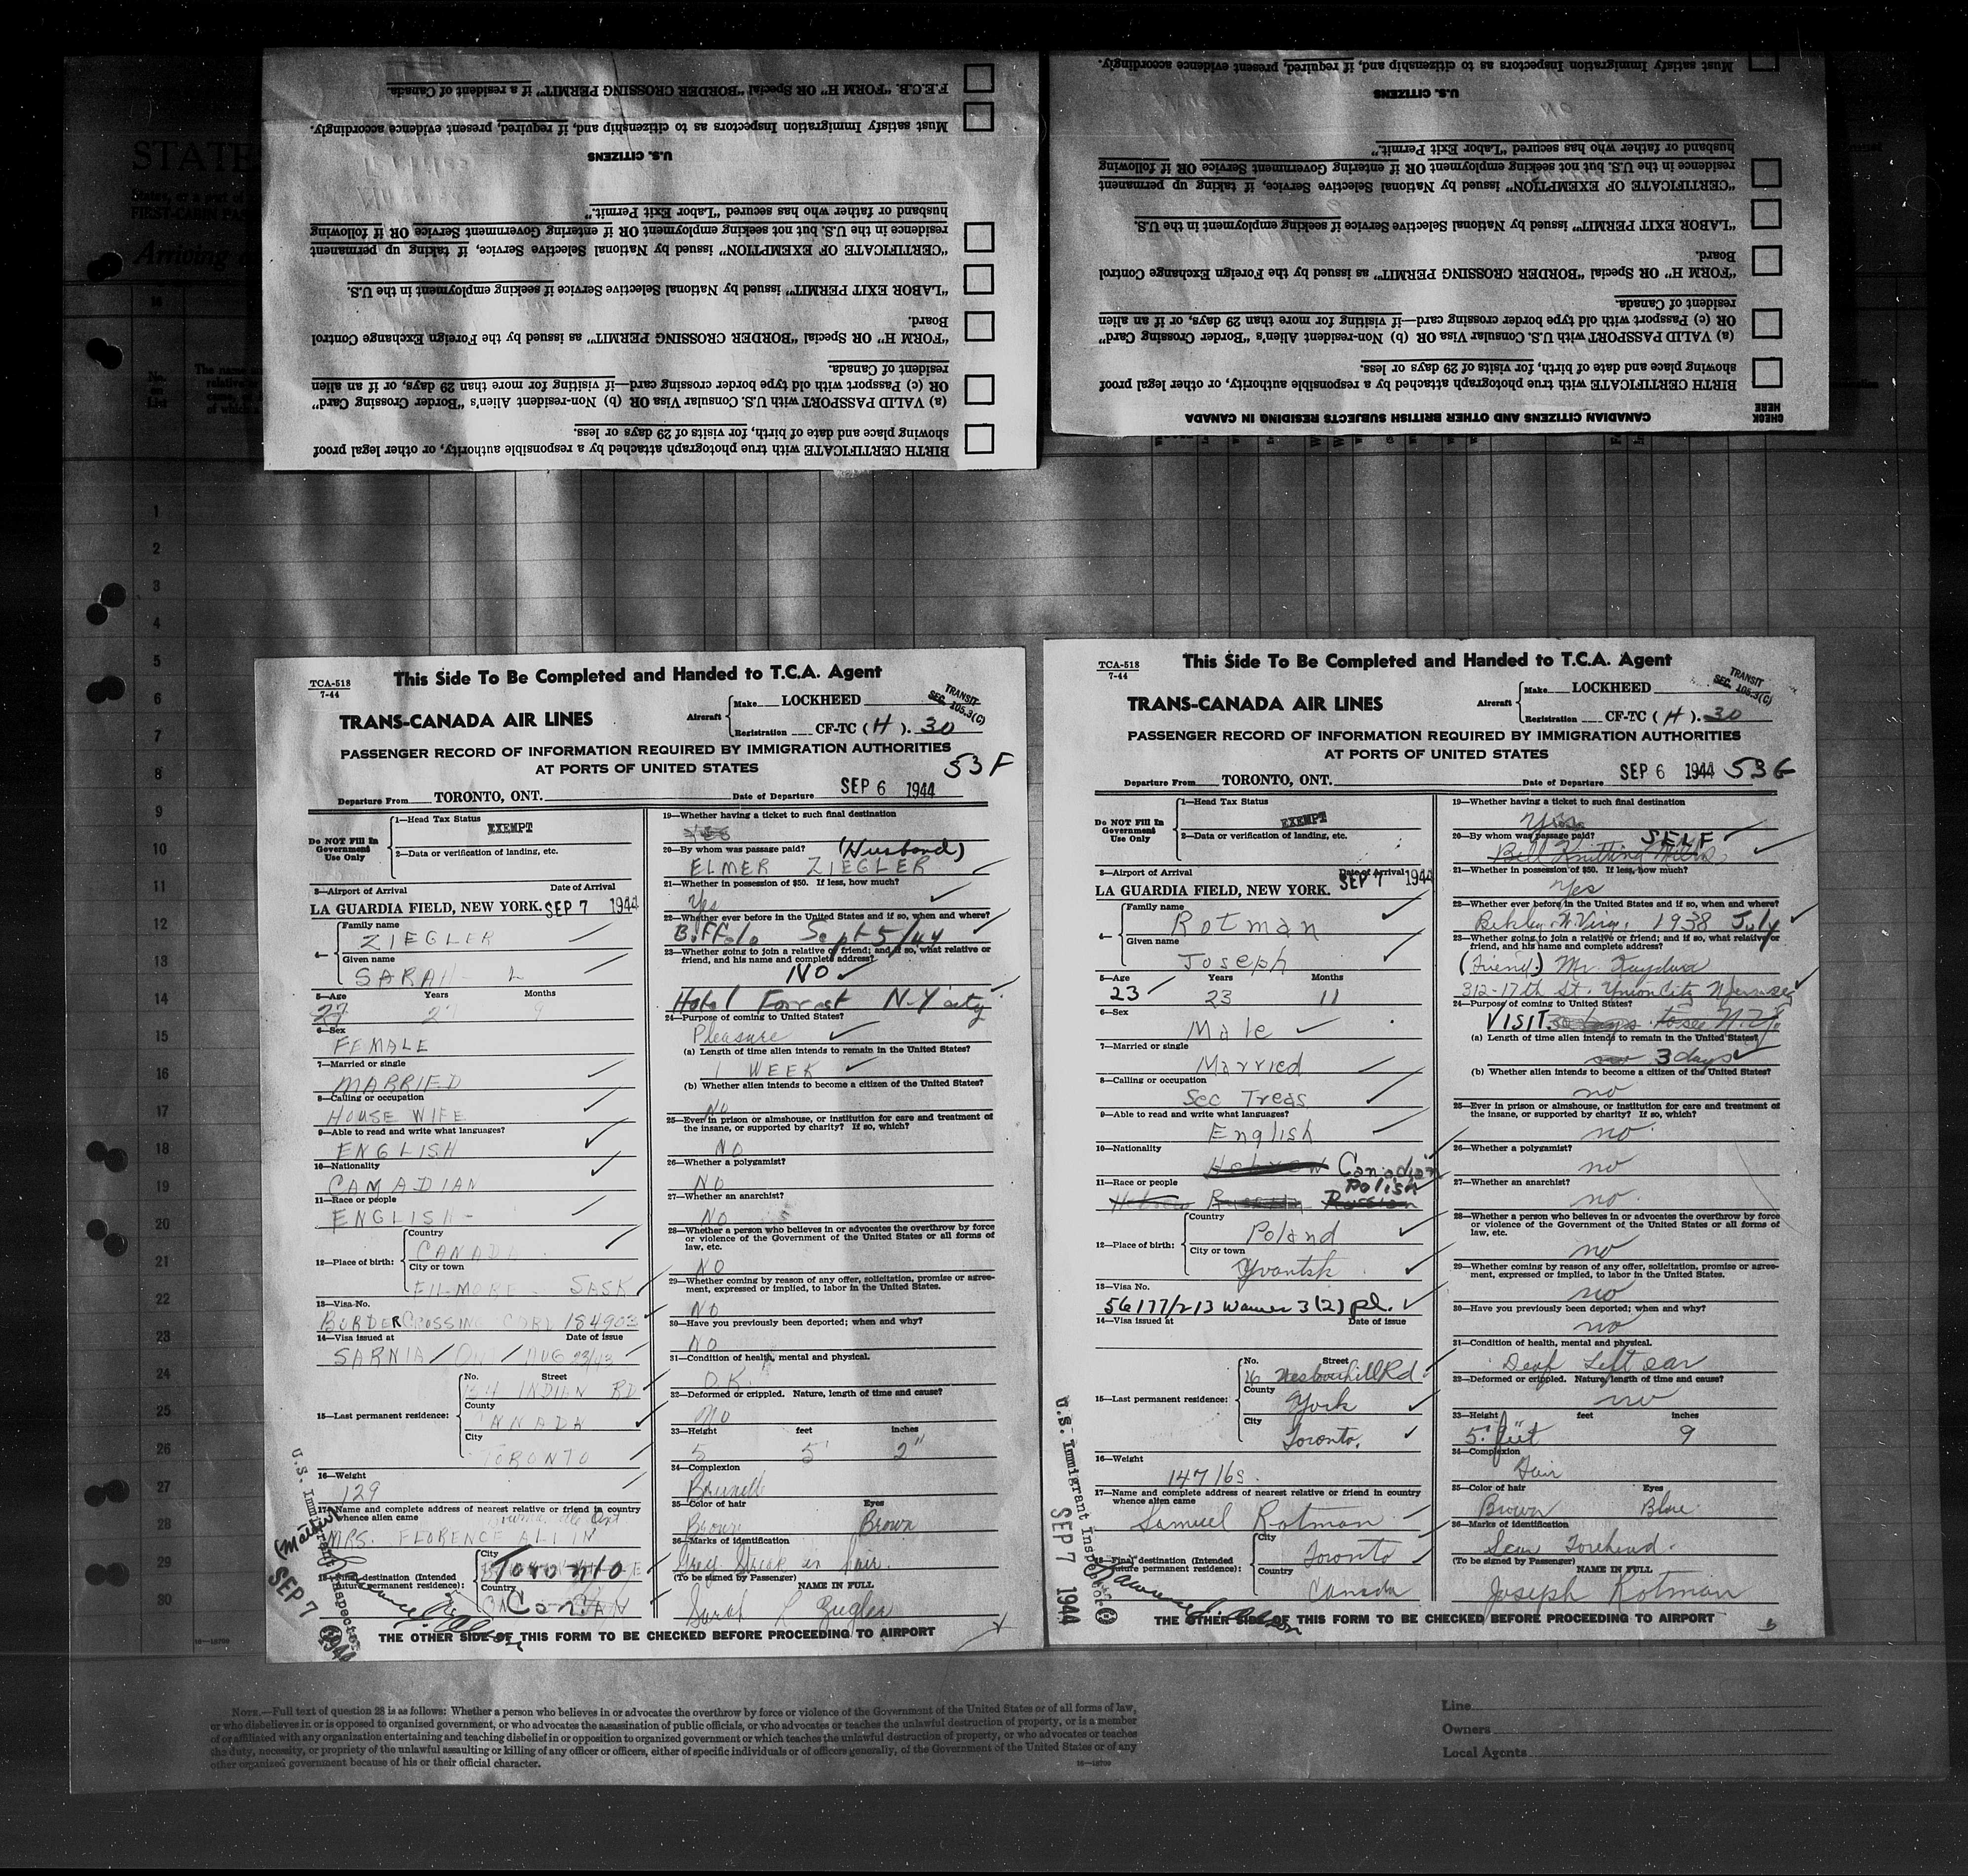 F.E.C.B. "FORM H" OR Special "BORDER CROSSING PERMIT" if a resident of Canada
Must satisfy Immigration Inspectors as to citizenship and, if required, present evidence accordingly.
U.S. CITIZENS
husband or father who has secured "Labor Exit Permit."
residence in the U.S. but not seeking employment OR if entering Government Service OR if following
"CERTIFICATE OF EXEMPTION" issued by National Selective Service, if taking up permanent
"LABOR EXIT PERMIT" issued by National Selective Service if seeking employment in the U.S.
Board.
"FORM H" OR Special "BORDER CROSSING PERMIT" as issued by the Foreign Exchange Control
resident of Canada.
OR (c) Passport with old type border crossing card—if visiting for more than 29 days, or if an alien
(a) VALID PASSPORT with U.S. Consular Visa OR (b) Non-resident Alien's "Border Crossing Card"
showing place and date of birth, for visits of 29 days or less.
BIRTH CERTIFICATE with true photograph attached by a responsible authority, or other legal proof
Must satisfy Immigration Inspectors as to citizenship and, if required, present evidence accordingly.
U.S. CITIZENS
husband or father who has secured "Labor Exit Permit."
residence in the U.S. but not seeking employment OR if entering Government Service OR if following
"CERTIFICATE OF EXEMPTION" issued by National Selective Service, if taking up permanent
"LABOR EXIT PERMIT" issued by National Selective Service if seeking employment in the U.S.
Board.
"FORM H" OR Special "BORDER CROSSING PERMIT" as issued by the Foreign Exchange Control
resident of Canada.
OR (c) Passport with old type border crossing card—if visiting for more than 29 days, or if an alien
(a) VALID PASSPORT with U.S. Consular Visa OR (b) Non-resident Alien's "Border Crossing Card"
showing place and date of birth, for visits of 29 days or less.
BIRTH CERTIFICATE with true photograph attached by a responsible authority, or other legal proof
CANADIAN CITIZENS AND OTHER BRITISH SUBJECTS RESIDING IN CANADA
CHECK HERE
STATE
States, or a part of
FIRST-CABIN PA
Arriving
1
2
3
4
5
6
7
8
9
10
11
12
13
14
15
16
17
18
19
20
21
22
23
24
25
26
27
28
29
30
TCA-518
7-44
This Side To Be Completed and Handed to T.C.A. Agent
TRANSIT
SEC. 105.3(C)
TRANS-CANADA AIR LINES
Aircraft
Make LOCKHEED
Registration CF-TC (H). 30
PASSENGER RECORD OF INFORMATION REQUIRED BY IMMIGRATION AUTHORITIES
AT PORTS OF UNITED STATES
53F
Departure From TORONTO, ONT. Date of Departure SEP 6 1944
Do NOT Fill In
Government
Use Only
1—Head Tax Status
EXEMPT
2—Data or verification of landing, etc.
3—Airport of Arrival Date of Arrival
LA GUARDIA FIELD, NEW YORK. SEP 7 1944
4—
Family name
ZIEGLER
Given name
SARAH L
5—Age Years Months
27 27 9
6—Sex
FEMALE
7—Married or single
MARRIED
8—Calling or occupation
HOUSE WIFE
9—Able to read and write what languages?
ENGLISH
10—Nationality
CANADIAN
11—Race or people
ENGLISH
12—Place of birth:
Country
CANADA
City or town
FILMORE SASK
13—Visa No.
BORDER CROSSING CARD 184903
14—Visa issued at Date of issue
SARNIA / ONT / AUG 23/43
15—Last permanent residence:
No. Street
INDIAN RD
County
CANADA
City
TORONTO
16—Weight
129
17—Name and complete address of nearest relative or friend in country
whence alien came
(Mother)
MRS. FLORENCE ALLIN
18—Final destination (Intended
future permanent residence):
City
Toronto
Country
Can
19—Whether having a ticket to such final destination
Yes
20—By whom was passage paid? (Husband)
ELMER ZIEGLER
21—Whether in possession of $50. If less, how much?
Yes
22—Whether ever before in the United States and if so, when and where?
Buffalo Sept 5/44
23—Whether going to join a relative or friend; and if so, what relative or
friend, and his name and complete address?
NO
Hotel Forrest N-Y city
24—Purpose of coming to United States?
Pleasure
(a) Length of time alien intends to remain in the United States?
1 WEEK
(b) Whether alien intends to become a citizen of the United States?
NO
25—Ever in prison or almshouse, or institution for care and treatment of
the insane, or supported by charity? If so, which?
NO
26—Whether a polygamist?
NO
27—Whether an anarchist?
NO
28—Whether a person who believes in or advocates the overthrow by force
or violence of the Government of the United States or all forms of
law, etc.
NO
29—Whether coming by reason of any offer, solicitation, promise or agree-
ment, expressed or implied, to labor in the United States.
NO
30—Have you previously been deported; when and why?
NO
31—Condition of health, mental and physical.
O.K.
32—Deformed or crippled. Nature, length of time and cause?
no
33—Height feet inches
5 5' 2"
34—Complexion
Brunett
35—Color of hair Eyes
Brown Brown
36—Marks of identification
Grey Streak in hair.
(To be signed by Passenger) NAME IN FULL
Sarah L Ziegler
THE OTHER SIDE OF THIS FORM TO BE CHECKED BEFORE PROCEEDING TO AIRPORT
U.S. Immigrant Inspector
SEP 7 1944
TCA-518
7-44
This Side To Be Completed and Handed to T.C.A. Agent
TRANSIT
SEC. 105.3(C)
TRANS-CANADA AIR LINES
Aircraft
Make LOCKHEED
Registration CF-TC (H). 30
PASSENGER RECORD OF INFORMATION REQUIRED BY IMMIGRATION AUTHORITIES
AT PORTS OF UNITED STATES
Departure From TORONTO, ONT. Date of Departure SEP 6 1944 53G
Do NOT Fill In
Government
Use Only
1—Head Tax Status
EXEMPT
2—Data or verification of landing, etc.
3—Airport of Arrival Date of Arrival
LA GUARDIA FIELD, NEW YORK. SEP 7 1944
4—
Family name
Rotman
Given name
Joseph
5—Age Years Months
23 23 11
6—Sex
Male
7—Married or single
Married
8—Calling or occupation
Sec Treas
9—Able to read and write what languages?
English
10—Nationality
Hebrew Canadian
11—Race or people Polish
Hebrew Russian Russian
12—Place of birth:
Country
Poland
City or town
Yvantsk
13—Visa No.
56177/213 Waiver 3(2) pl.
14—Visa issued at Date of issue
15—Last permanent residence:
No. Street
76 Rd
County
York
City
Toronto.
16—Weight
147 lbs.
17—Name and complete address of nearest relative or friend in country
whence alien came
Samuel Rotman
18—Final destination (Intended
future permanent residence):
City
Toronto
Country
Canada
19—Whether having a ticket to such final destination
Yes
20—By whom was passage paid? SELF
Bell Knitting Mills
21—Whether in possession of $50. If less, how much?
Yes
22—Whether ever before in the United States and if so, when and where?
W. Virg. 1938 July
23—Whether going to join a relative or friend; and if so, what relative or
friend, and his name and complete address?
(Friend) Mr.
312-17th St. Union City N Jersey
24—Purpose of coming to United States?
VISIT
(a) Length of time alien intends to remain in the United States?
3 days
(b) Whether alien intends to become a citizen of the United States?
no
25—Ever in prison or almshouse, or institution for care and treatment of
the insane, or supported by charity? If so, which?
no
26—Whether a polygamist?
no
27—Whether an anarchist?
no
28—Whether a person who believes in or advocates the overthrow by force
or violence of the Government of the United States or all forms of
law, etc.
no
29—Whether coming by reason of any offer, solicitation, promise or agree-
ment, expressed or implied, to labor in the United States.
no
30—Have you previously been deported; when and why?
no
31—Condition of health, mental and physical.
Deaf Left ear
32—Deformed or crippled. Nature, length of time and cause?
no
33—Height feet inches
5 feet 9
34—Complexion
Fair
35—Color of hair Eyes
Brown Blue
36—Marks of identification
Scar Forehead.
(To be signed by Passenger) NAME IN FULL
Joseph Rotman
THE OTHER SIDE OF THIS FORM TO BE CHECKED BEFORE PROCEEDING TO AIRPORT
U.S. Immigrant Inspector
SEP 7 1944
NOTE.—Full text of question 28 is as follows: Whether a person who believes in or advocates the overthrow by force or violence of the Government of the United States or of all forms of law,
or who disbelieves in or is opposed to organized government, or who advocates the assassination of public officials, or who advocates or teaches the unlawful destruction of property, or is a member
of or affiliated with any organization entertaining and teaching disbelief in or opposition to organized government or which teaches the unlawful destruction of property, or who advocates or teaches
the duty, necessity, or propriety of the unlawful assaulting or killing of any officer or officers, either of specific individuals or of officers generally, of the Government of the United States or of any
other organized government because of his or their official character.
16—18700
Line
Owners
Local Agents